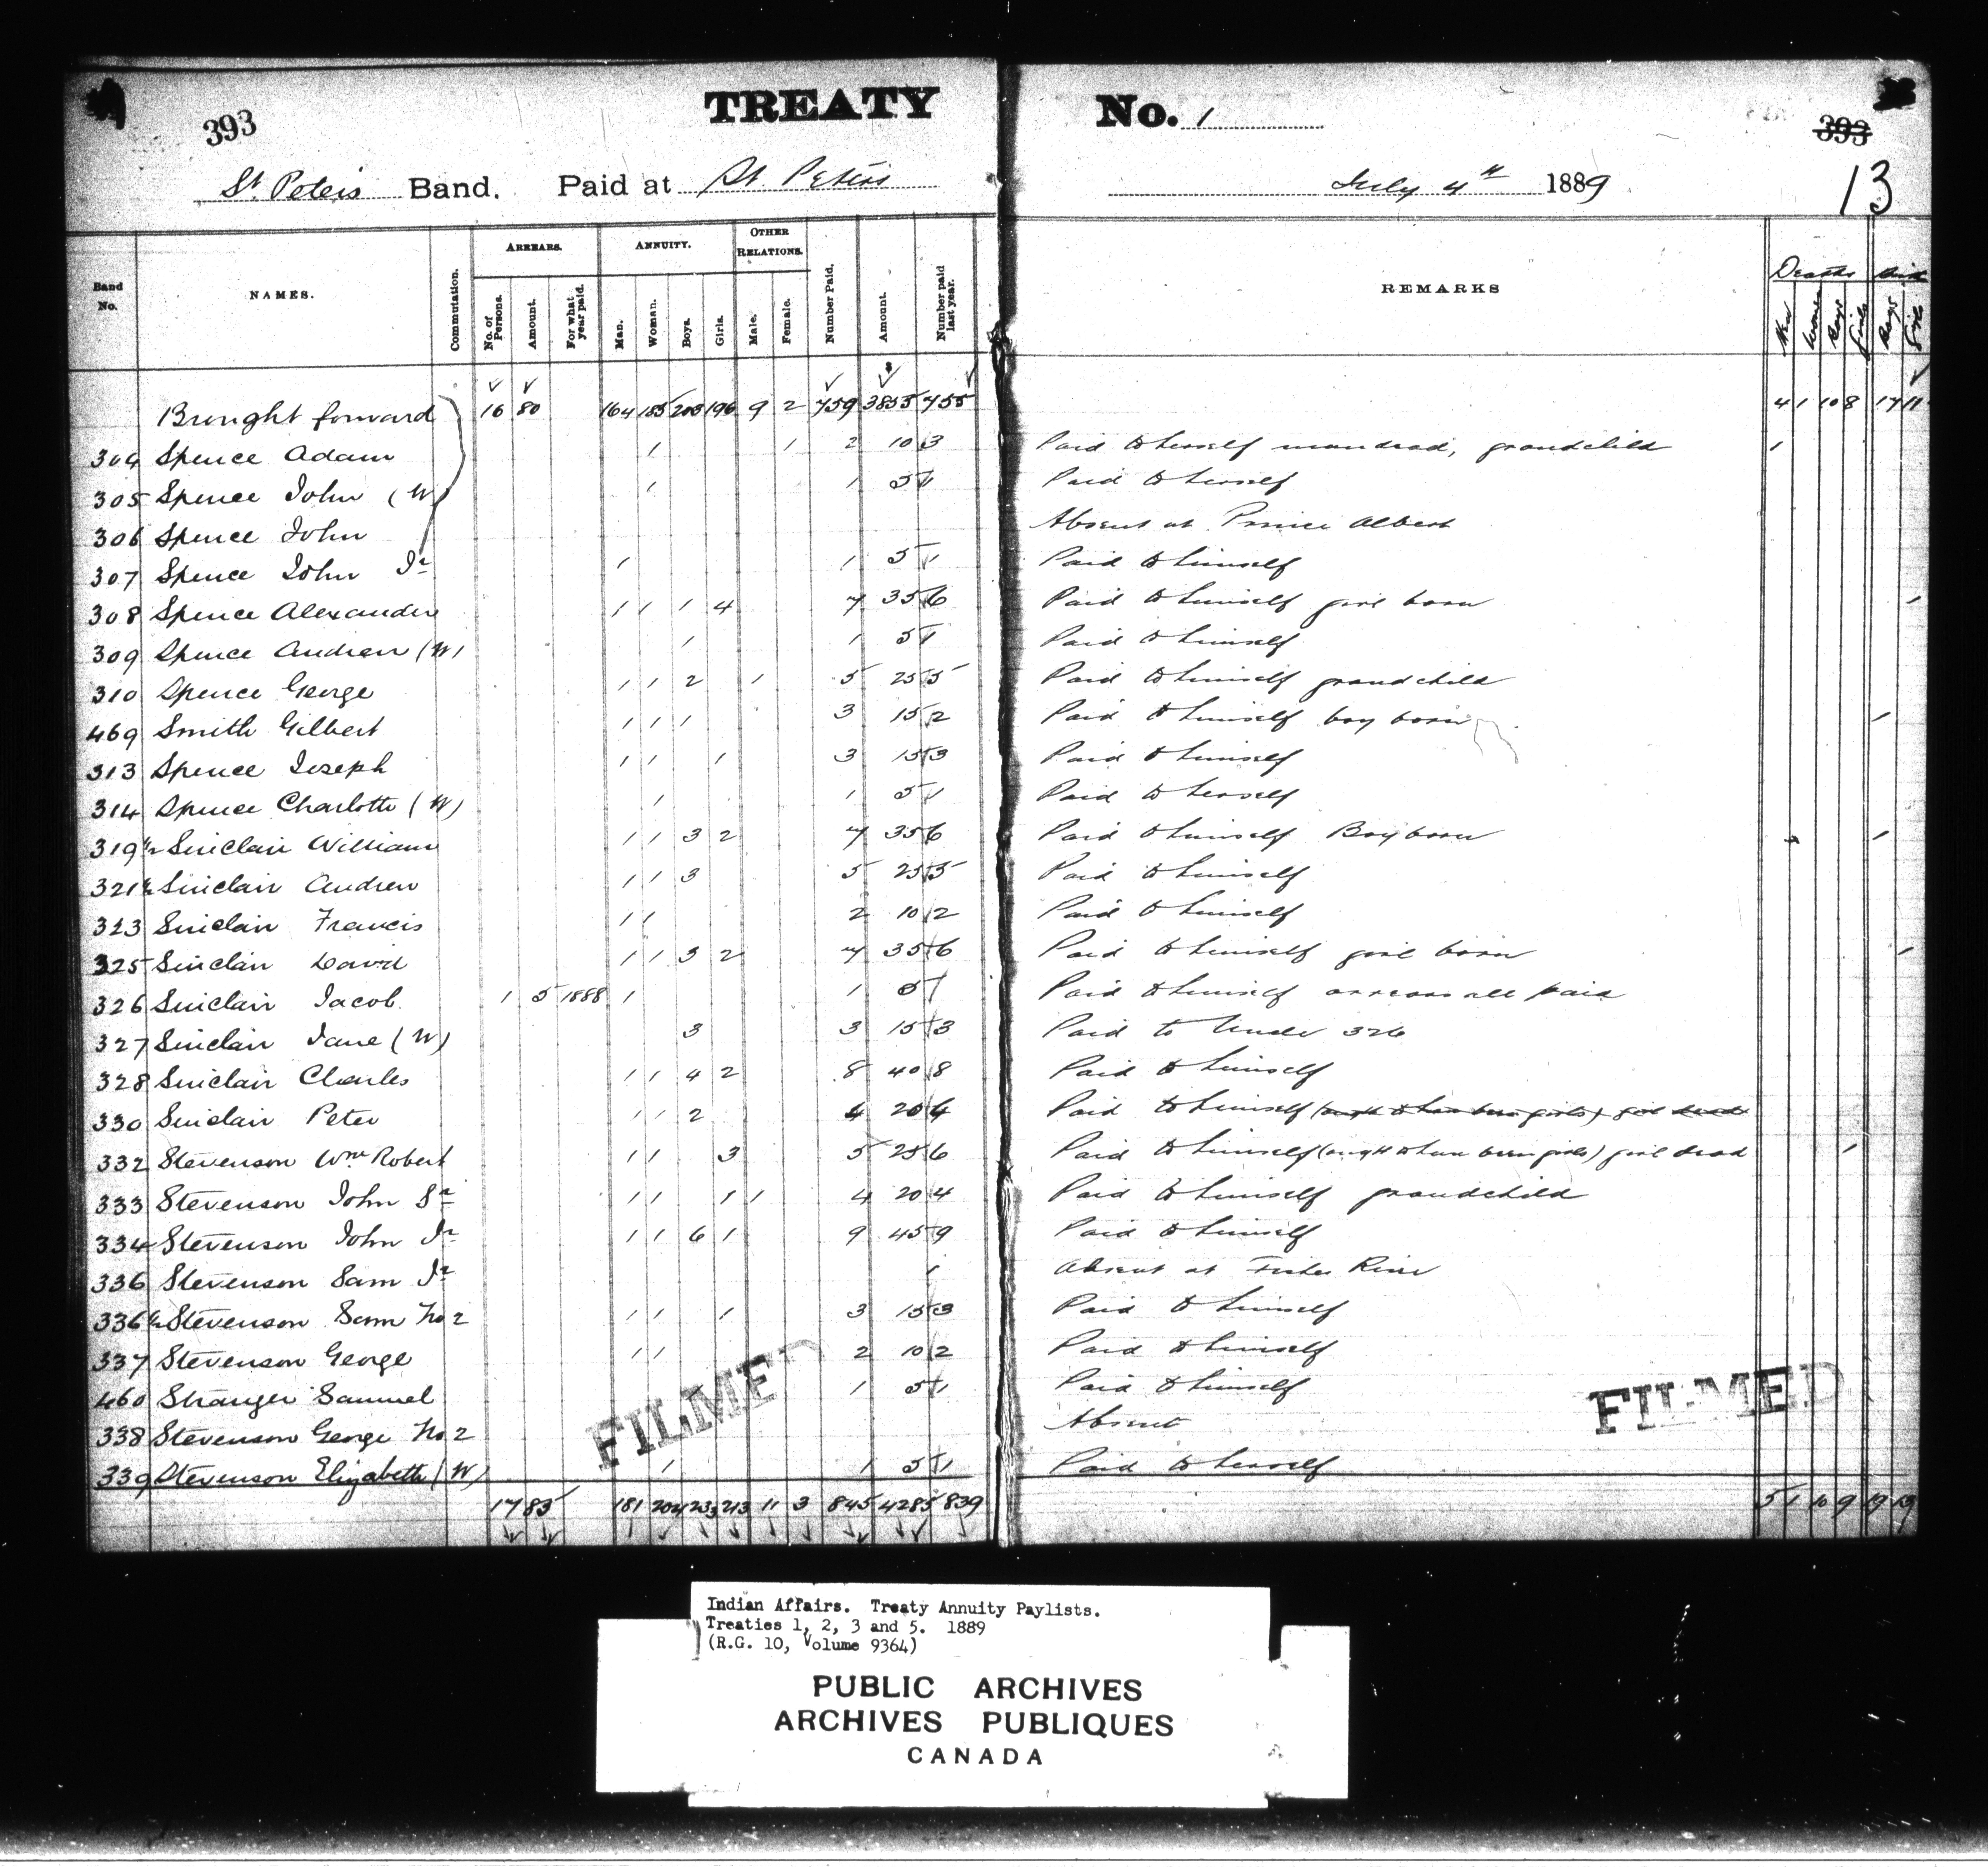 393 TREATY No. 1 393
St. Peters Band. Paid at St. Peters July 4th 1889 13
Band No. NAMES. Commutation. ARREARS. No. of Persons. Amount. For what year paid. ANNUITY. Man. Woman. Boys. Girls. OTHER RELATIONS. Male. Female. Number Paid. Amount. Number paid last year. REMARKS Deaths Men Women Boys Girls Boys Girls
Brought forward 16 80 164 185 203 196 9 2 759 3855 755 4 1 10 8 17 11
304 Spence Adam 1 1 2 10 3 Paid to herself man dead, grandchild 1
305 Spence John (W) 1 1 5 1 Paid to herself
306 Spence John Absent at Prince Albert
307 Spence John Jr 1 1 5 1 Paid to himself
308 Spence Alexander 1 1 1 4 7 35 6 Paid to himself girl born 1
309 Spence Andrew (W) 1 1 5 1 Paid to himself
310 Spence George 1 1 2 1 5 25 5 Paid to himself grandchild
469 Smith Gilbert 1 1 1 3 15 2 Paid to himself boy born 1
313 Spence Joseph 1 1 1 3 15 3 Paid to himself
314 Spence Charlotte (W) 1 1 5 1 Paid to herself
319½ Sinclair William 1 1 3 2 7 35 6 Paid to himself Boy born 1
321½ Sinclair Andrew 1 1 3 5 25 5 Paid to himself
323 Sinclair Francis 1 1 2 10 2 Paid to himself
325 Sinclair David 1 1 3 2 7 35 6 Paid to himself girl born 1
326 Sinclair Jacob 1 5 1888 1 1 5 1 Paid to himself arrears all paid
327 Sinclair Jane (W) 3 3 15 3 Paid to Under 326
328 Sinclair Charles 1 1 4 2 8 40 8 Paid to himself
330 Sinclair Peter 1 1 2 4 20 4 Paid to himself (ought to have been girls) girl dead
332 Stevenson Wm Robert 1 1 3 5 25 6 Paid to himself (ought to have been girls) girl dead 1
333 Stevenson John Sr 1 1 1 1 4 20 4 Paid to himself grandchild
334 Stevenson John Jr 1 1 6 1 9 45 9 Paid to himself
336 Stevenson Sam Jr 1 Absent at Fisher River
336½ Stevenson Sam No 2 1 1 1 3 15 3 Paid to himself
337 Stevenson George 1 1 2 10 2 Paid to himself
460 Stranger Samuel 1 5 1 Paid to himself
338 Stevenson George No 2 Absent
339 Stevenson Elizabeth (W) 1 1 5 1 Paid to herself
17 85 181 204 233 213 11 3 845 4285 839 5 1 10 9 19 13
FILMED FILMED
Indian Affairs. Treaty Annuity Paylists.
Treaties 1, 2, 3 and 5. 1889
(R.G. 10, Volume 9364)
PUBLIC ARCHIVES
ARCHIVES PUBLIQUES
CANADA